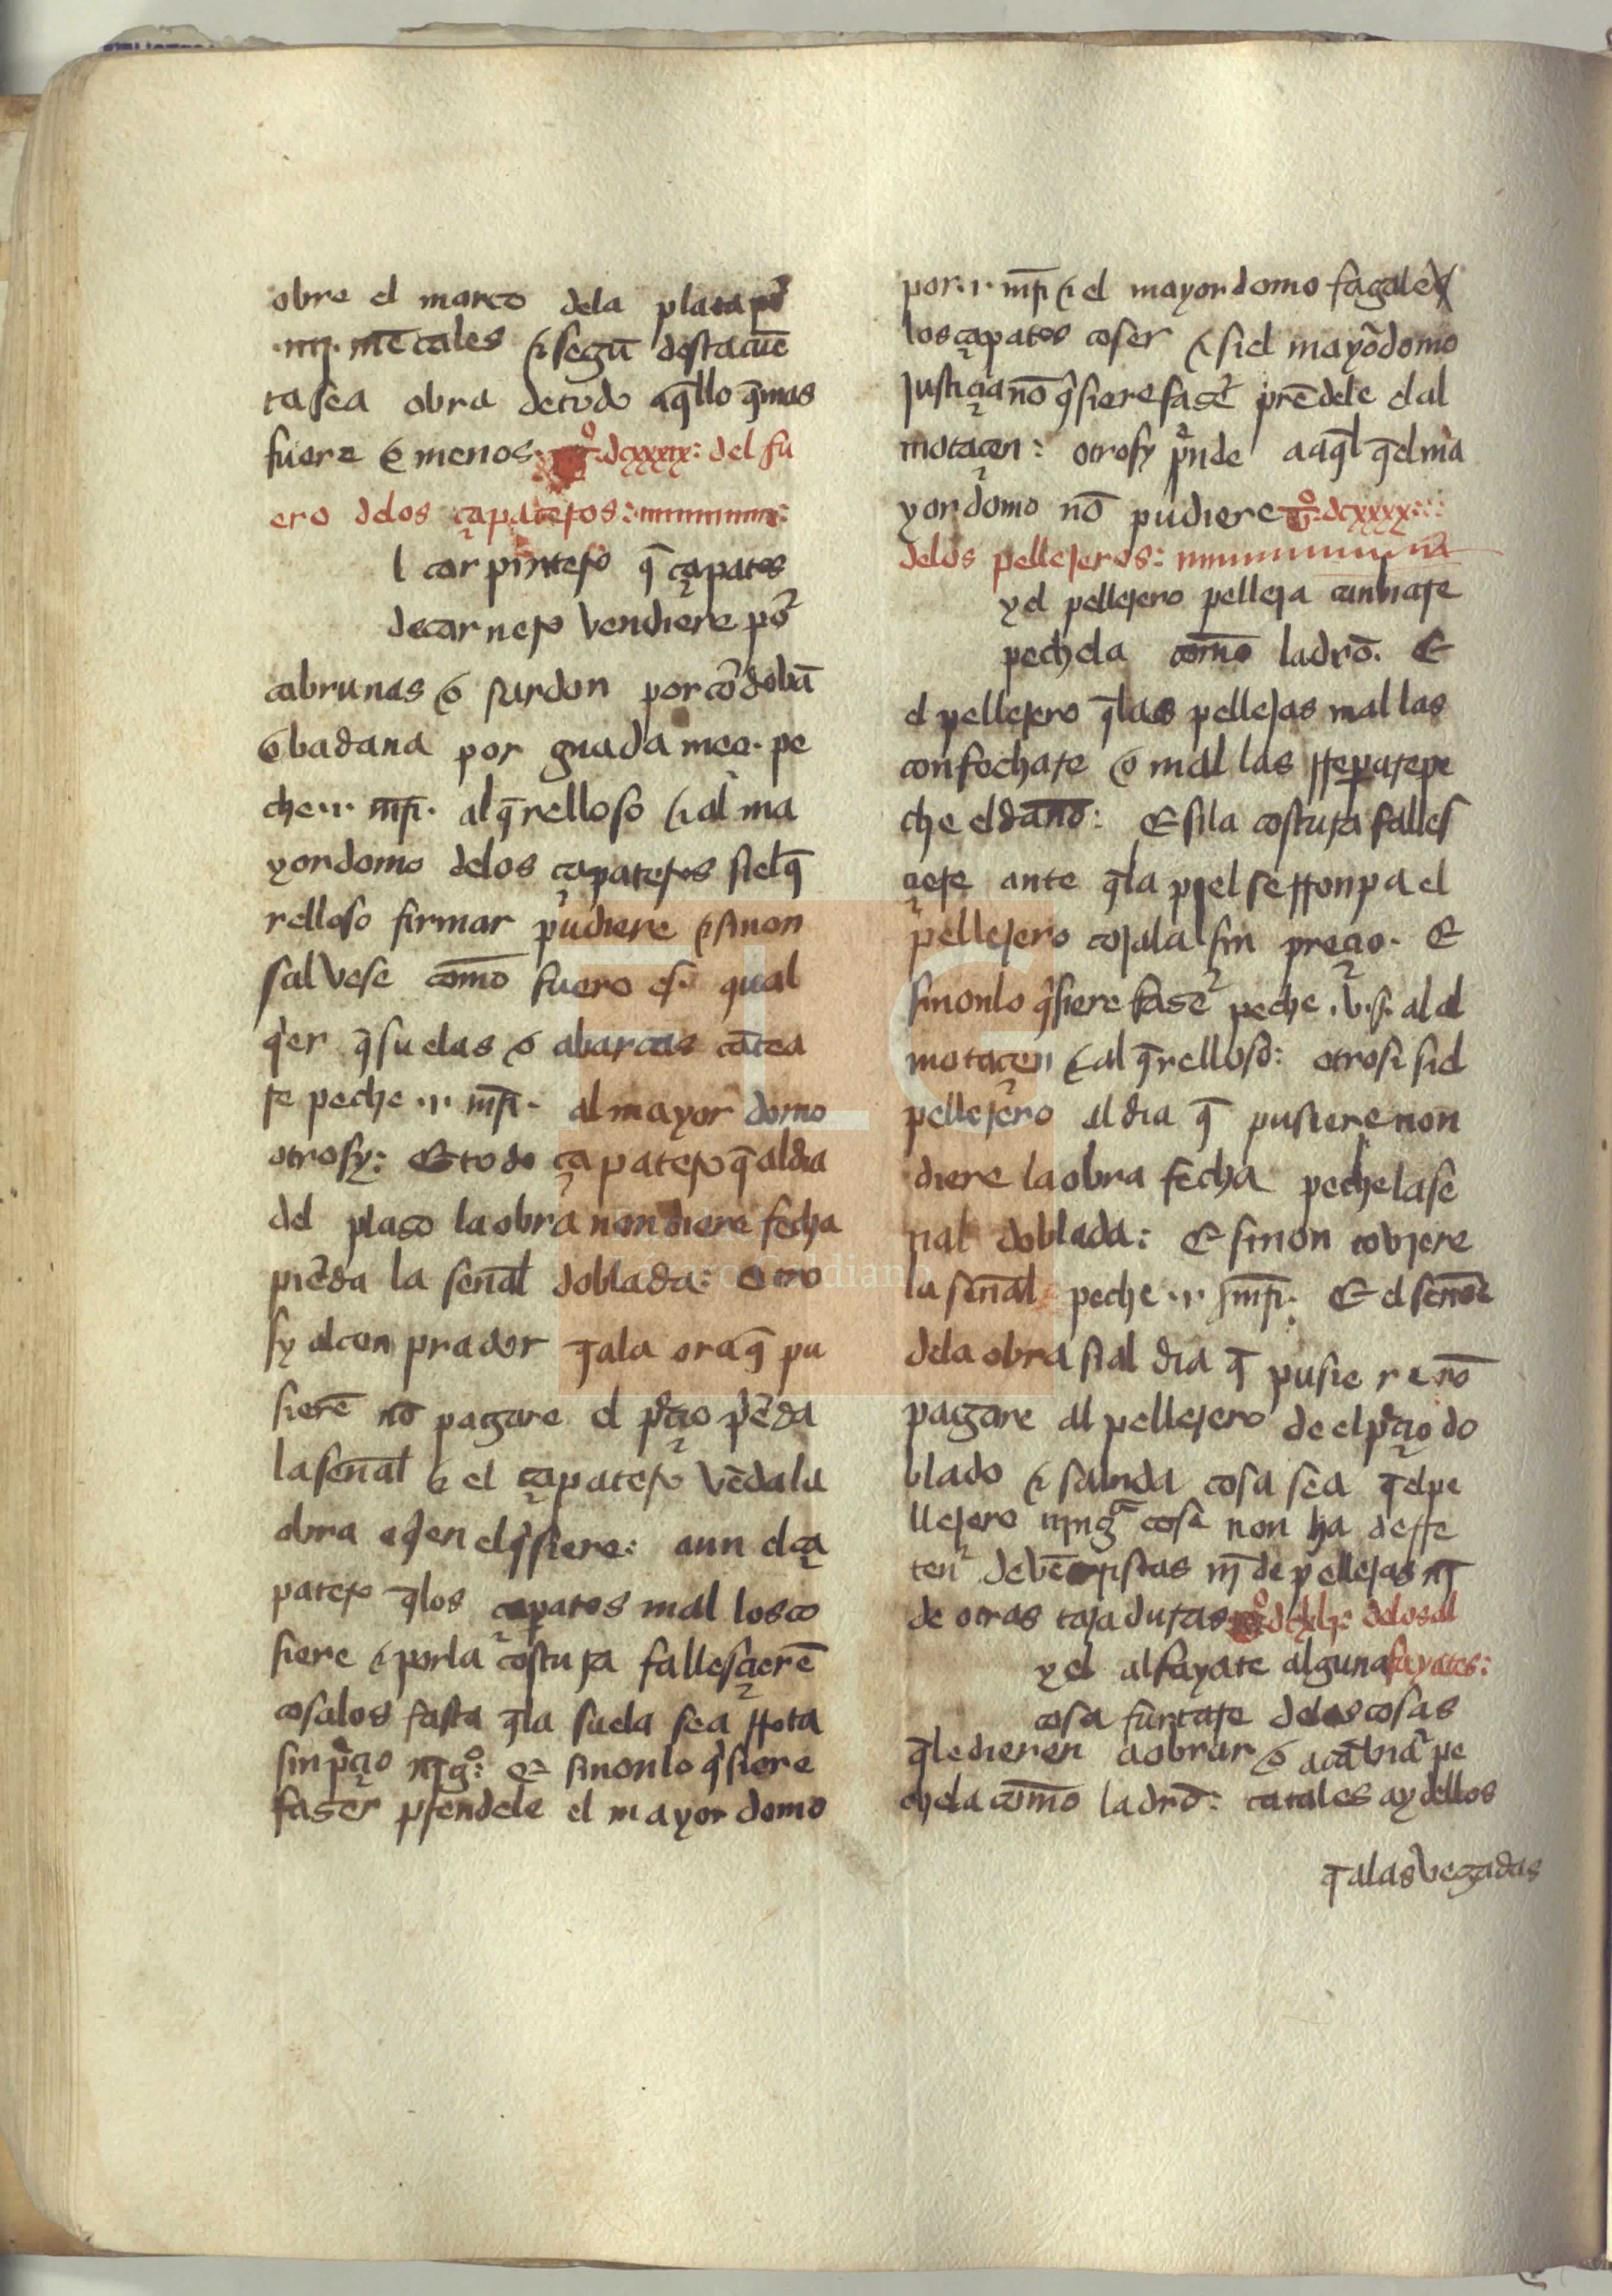 obre el marco dela plata pͦr
.iiij. mẽcales ⁊ segũ desta cuẽ
ta sea obra de todo aq̃llo q̃ mas
fuere o menos. tͦ. dcxxxix: del fu
ero delos çapateros:
l carpintero q̃ çapatos
de carnero vendiere põr
cabrunas o surdon por cõrdobã
o badana por guadameci. pe
che .i. mr̃. al q̃relloso ⁊ al ma
yordomo delos çapateros si el q̃
relloso firmar pudiere ⁊ sinon
salvese como fuero es. qual
q̉er q̃ suelas o abarcas cãtea
re peche .i. mr̃. al mayordomo
otrosy: Et todo çapatero q̃ al dia
del plaso la obra non diere fecha
piẽda la señal doblada: otro
sy el conprador q̃ ala ora q̃ pu
sierẽ nõ pagare el p̃çio pẽda
la señal o el çapatero vẽda la
obra a q̉en el q̉siere: aun el ça
patero q̃ los çapatos mal los co
siere ⁊ por la costura fallesçierẽ
cosalos fasta q̃ la suela sea rrota
sin p̃çio nĩgͦ: et sinon lo q̉siere
faser prendele el mayordomo
por .i. mr̃ ⁊ el mayordomo fagale
los çapatos coser ⁊ si el mayõdomo
justiçia nõ q̉siere fasẽr prẽdele el al
motaçen: otrosy p̃nde a aq̃l q̃ el ma
yordomo nõ pudiere tͦ. dcxxxx:
delos pellejeros:
y el pellejero pelleja canbiare
pechela como ladrõ. Et
el pellejero q̃ las pellejas mal las
confechare o mal las rreparare pe
che el daño: Et si la costura falles
çiere ante q̃ la piel se rronpa el
pellejero cojala sin preçio. Et
sinon lo q̉siere fasẽr peche .v. s. al al
motaçen ⁊ al q̃relloso: otrosi si el
pellejero al dia q̃ pusiere non
diere la obra fecha peche la se
ñal doblada: Et si non toviere
la señal peche .i. mr̃. Et el señor
dela obra si al dia q̃ pusiere nõ
pagare al pellejero de el p̃çio do
blado ⁊ sabida cosa sea q̃ el pe
llejero nĩgᵃ cosa non ha de rre
tenẽr de vẽtriscas nj̃ de pellejas nj̃
de otras tajaduras tͦ. dcxlj: delos al
y el alfayate alguna fayates:
cosa furtare delas cosas
q̃ le dieren a obrar o a cãbiar pe
chela como ladrõ: ca tales ay dellos
q̃ alas vegadas